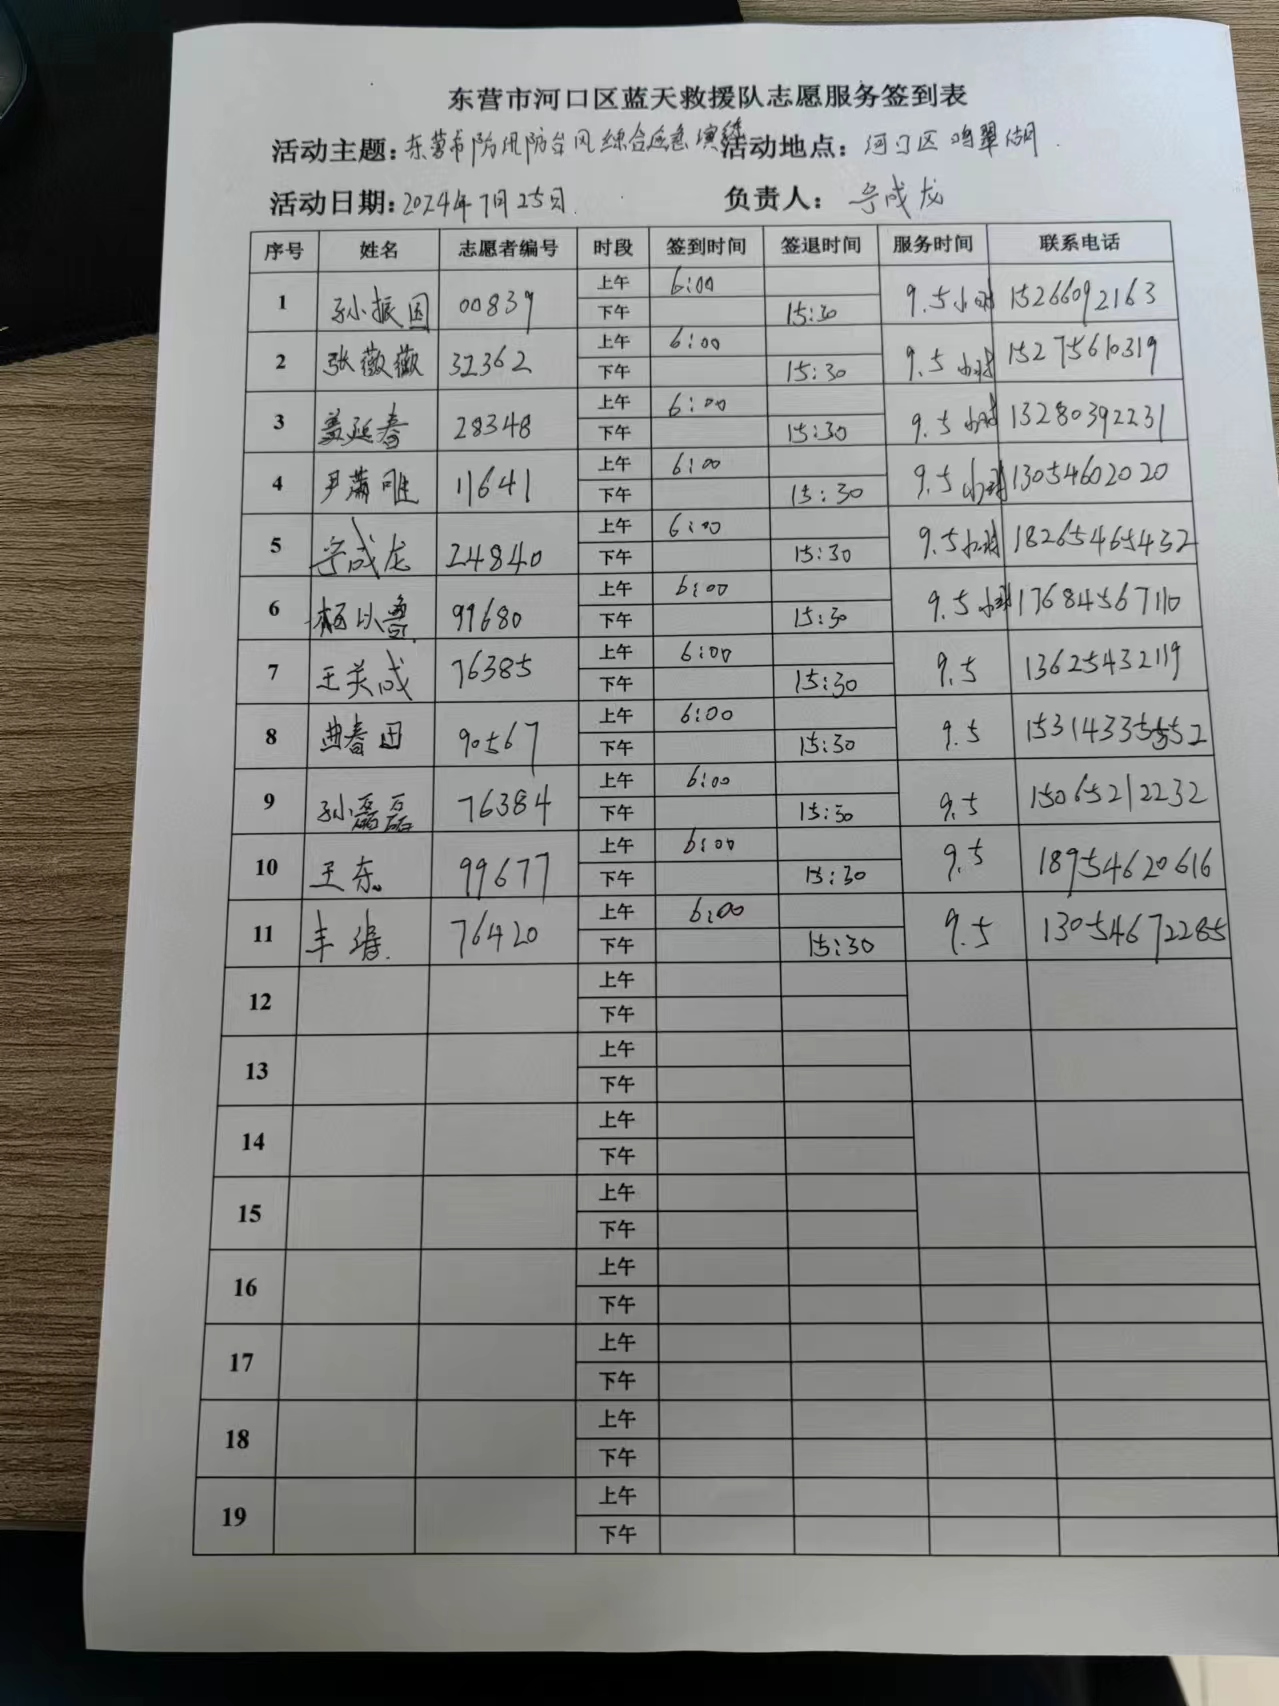 东营市河口区蓝天救援队志愿服务签到表
活动主题：东营市防汛防台风综合应急演练 活动地点：河口区鸣翠湖
活动日期：2024年7月25日 负责人：宁成龙
序号 姓名 志愿者编号 时段 签到时间 签退时间 服务时间 联系电话
1 孙振国 00839 上午 6:00 下午 15:30 9.5小时 15266092163
2 张薇薇 32362 上午 6:00 下午 15:30 9.5小时 15275610319
3 盖延春 28348 上午 6:00 下午 15:30 9.5小时 13280392231
4 尹 11641 上午 6:00 下午 15:30 9.5小时 13054602020
5 宁成龙 24840 上午 6:00 下午 15:30 9.5小时 18265465432
6 杨以鲁 99680 上午 6:00 下午 15:30 9.5小时 17684567110
7 王关成 76385 上午 6:00 下午 15:30 9.5 13625432119
8 曲春田 90567 上午 6:00 下午 15:30 9.5
9 孙磊磊 76384 上午 6:00 下午 15:30 9.5 15065212232
10 王东 99677 上午 6:00 下午 15:30 9.5 18954620616
11 丰 76420 上午 6:00 下午 15:30 9.5 13054672285
12 上午 下午
13 上午 下午
14 上午 下午
15 上午 下午
16 上午 下午
17 上午 下午
18 上午 下午
19 上午 下午